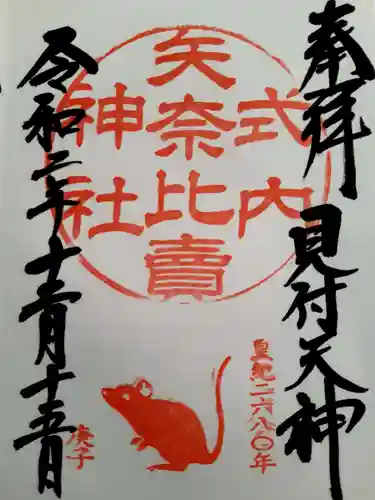 奉拝 見付天神
式内
矢奈比賣
神社
皇紀二六八〇年
庚子
令和二年十二月十二日